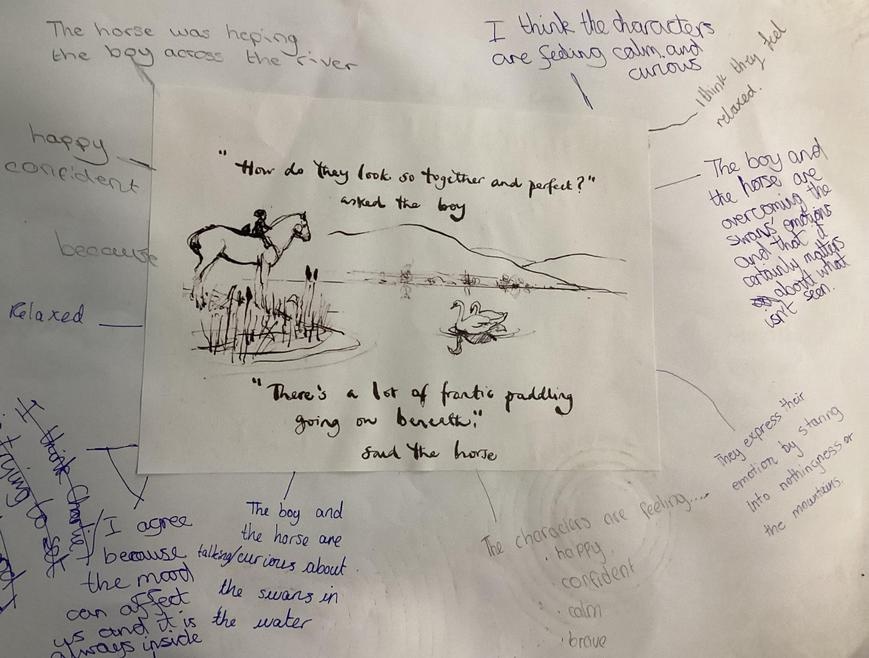 The horse was heping
the boy across the river
I think the characters
are feeling calm and
curious
I think they feel
relaxed.
happy
confident
because
Relaxed
"How do they look so together and perfect?"
asked the boy
"There's a lot of frantic paddling
going on beneath."
said the horse
The boy and
the horse are
overcoming the
swans' emotions
and that it
certainly matters
about what
isn't seen.
They express their
emotion by staring
into nothingness or
the mountains.
The characters are feeling....
• happy
• confident
• calm
• brave
The boy and
the horse are
talking/curious about
the swans in
the water
I agree
because
the mood
can affect
us and it is
always inside
I think Charlie
trying to